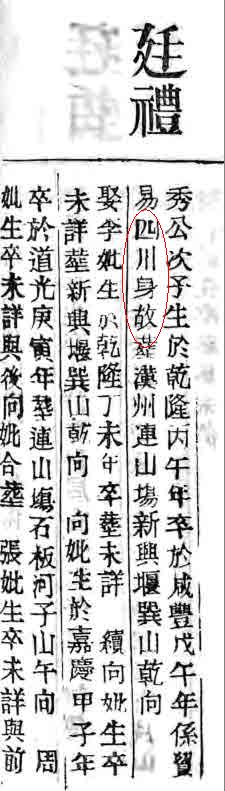 廷禮
秀公次子生於乾隆丙午年卒於咸豐戊午年係貿
易四川身故葬漢州連山場新興堰巽山乾向
娶李妣生於乾隆丁未年卒葬未詳 續向妣生卒
未詳葬新興堰巽山乾向 向妣生於嘉慶甲子年
卒於道光庚寅年葬連山塲石板河子山午向 周
妣生卒未詳與後向妣合葬 張妣生卒未詳與前